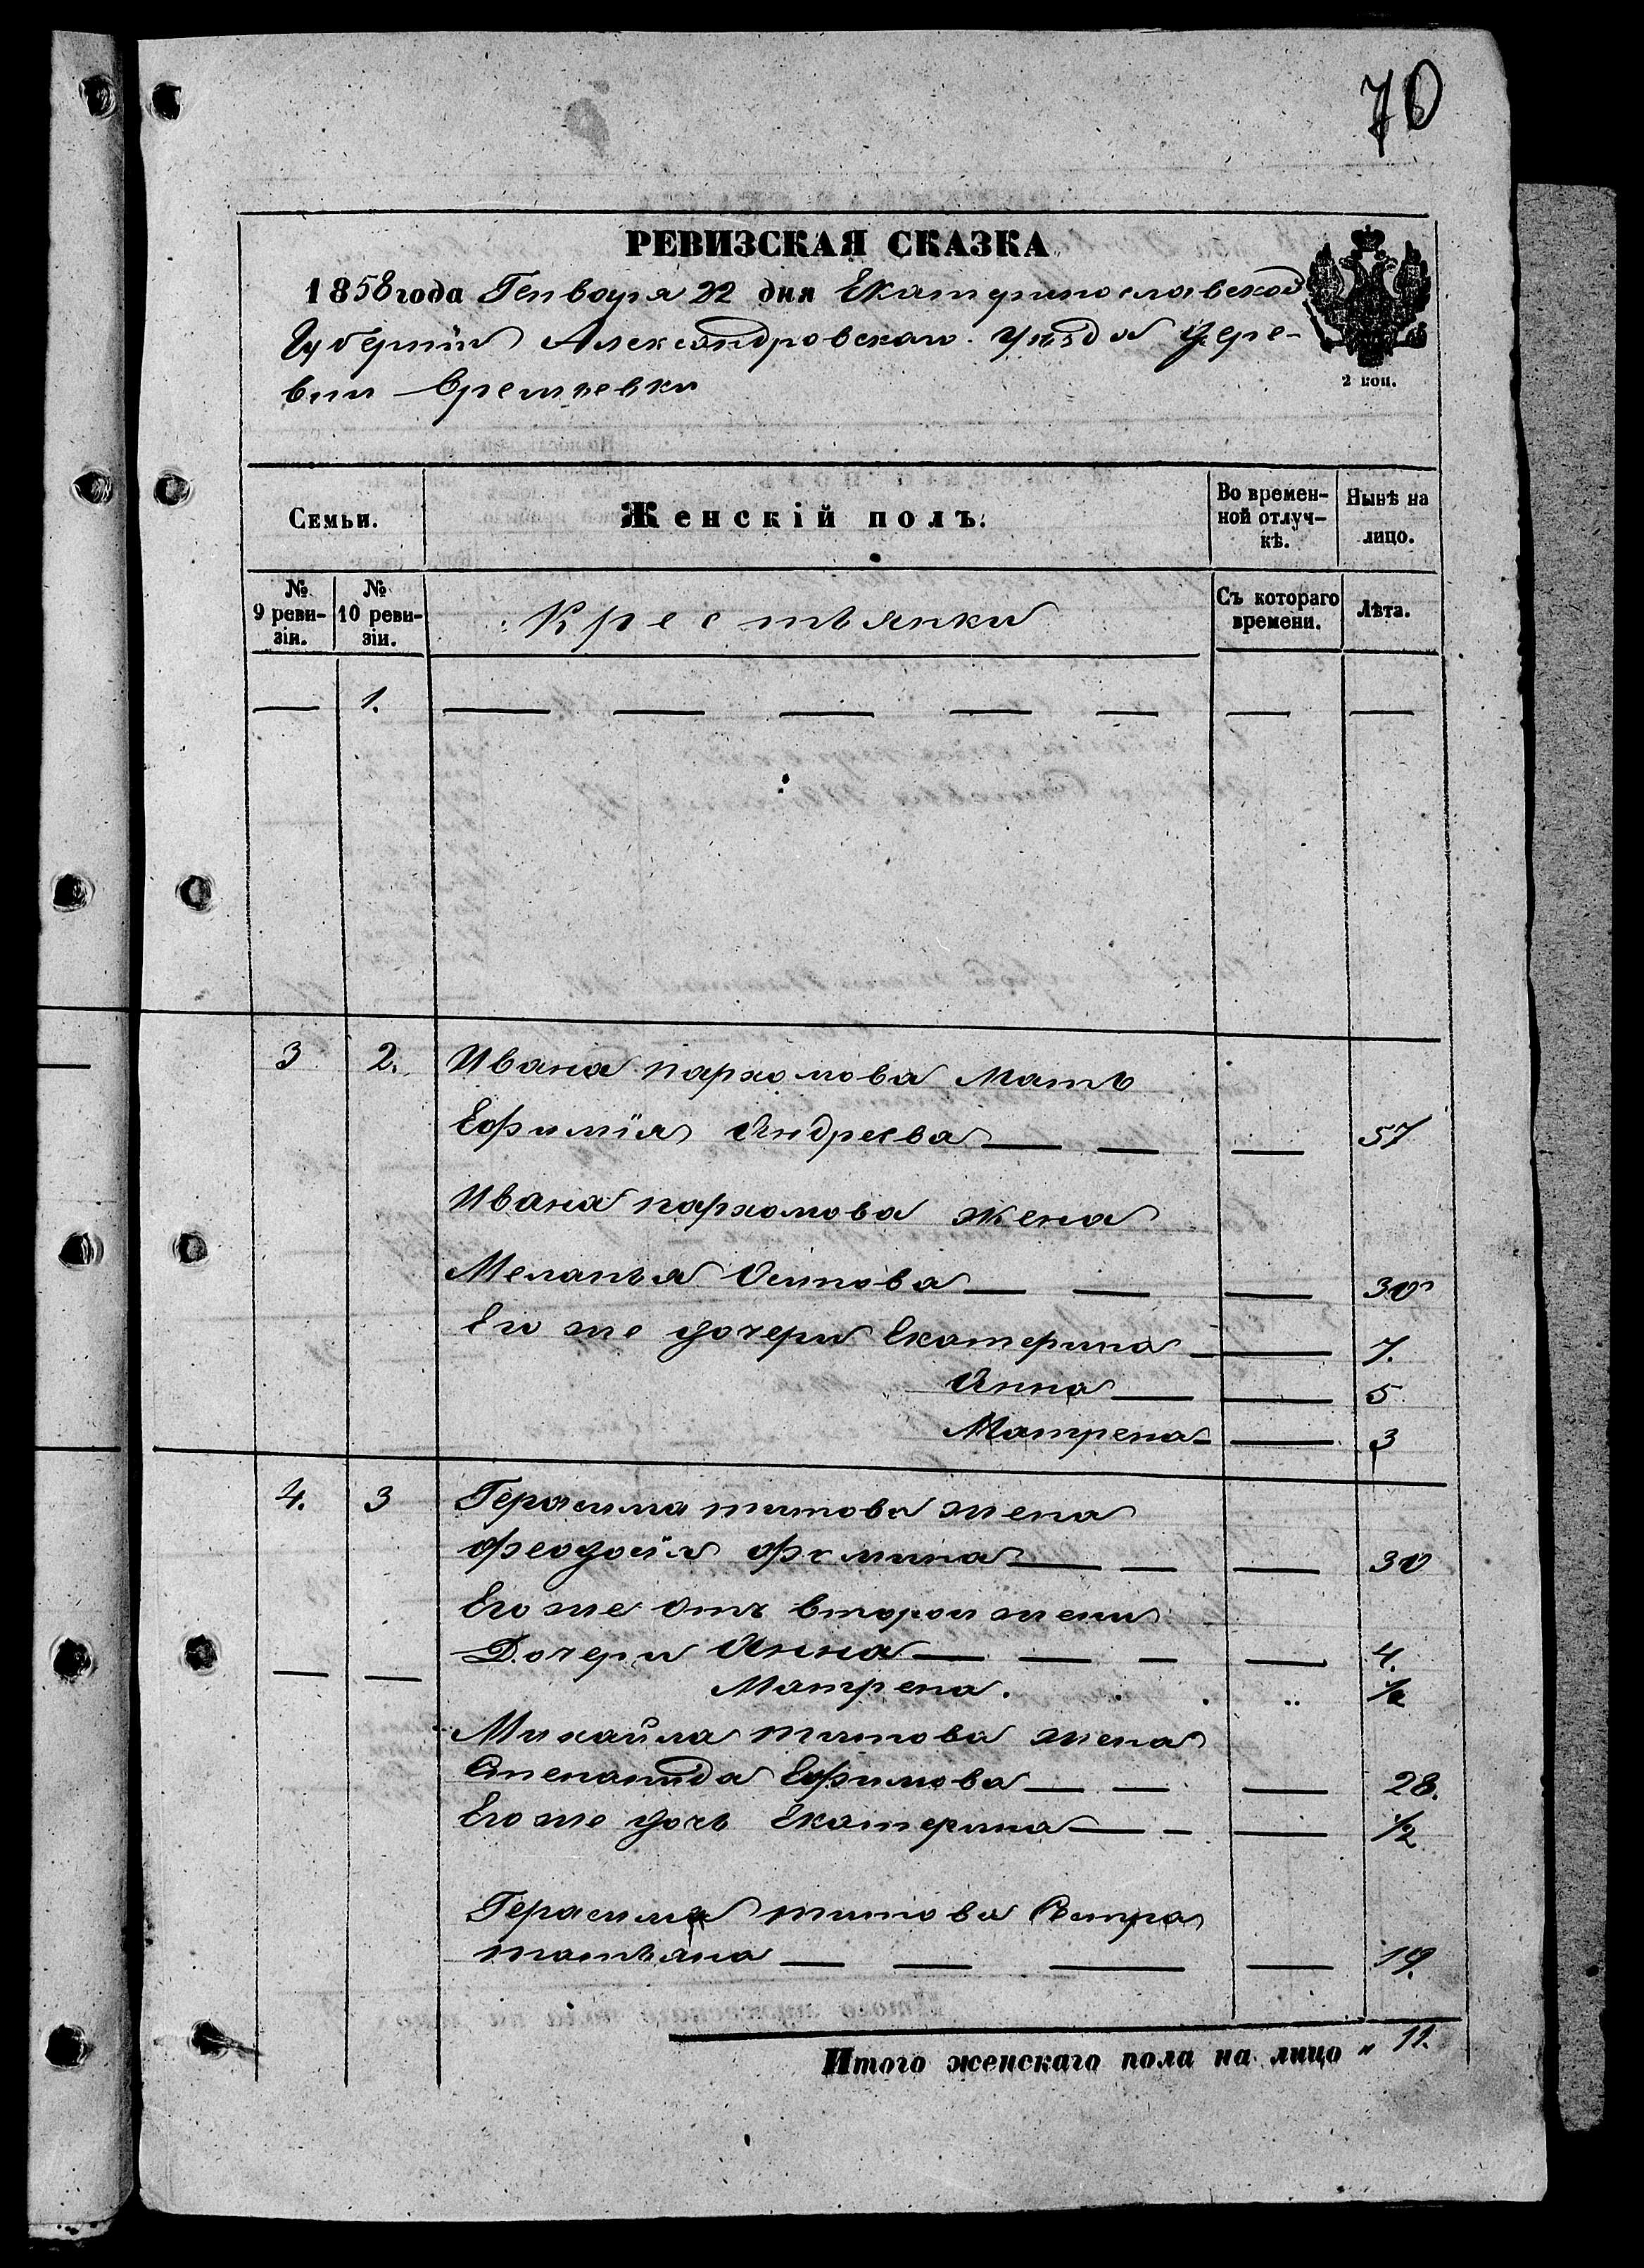 70
РЕВИЗСКАЯ СКАЗКА
1858 года Генваря 22 дня Екатеринославской
Губерніи Александровскаго уѣзда Дере-
вни Времьевки
2 коп.
Семьи.
Женскій полъ.
Во времен-
ной отлуч-
кѣ.
Нынѣ на
лицо.
№ 9 реви-
зіи.
№ 10 реви-
зіи.
Крестьянки
Съ котораго
времени.
Лѣта.
— 1. — — — — — — —
3 2. Ивана Пархомова Мать
Ефимія Андреева — — — 57
Ивана Пархомова жена
Меланья Осипова — — — 30
Его же дочери Екатерина — — 7.
Анна — — 5
Матрена — — 3
4. 3 Герасима Титова жена
Феодосія Фомина — — — 30
Его же отъ второй жены
Дочери Анна — — — — 4.
— — Матрена . . . „ ½
Михайла Титова жена
Степанида Ефимова — — — 28.
Его же дочь Екатерина — — — ½
Герасима Титова Сестра
Татьяна — — — — 19.
Итого женскаго пола на лицо „ 11.